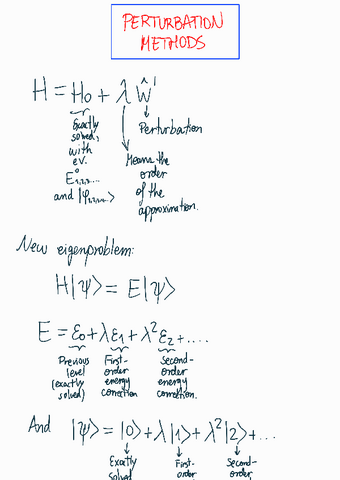 PERTURBATION
METHODS
H = H₀ + λ Ŵ'
Exactly
solved,
with
ev.
E°₁,₂,₃,...
and |φ₁,₂,₃,...>
Perturbation
Means the
order
of the
approximation.
New eigenproblem:
H|ψ> = E|ψ>
E = ε₀ + λε₁ + λ²ε₂ + ....
Previous
level
(exactly
solved)
First-
order
energy
correction
Second-
order
energy
correction.
And |ψ> = |0> + λ|1> + λ²|2> + ...
Exactly
solved
First-
order
Second-
order